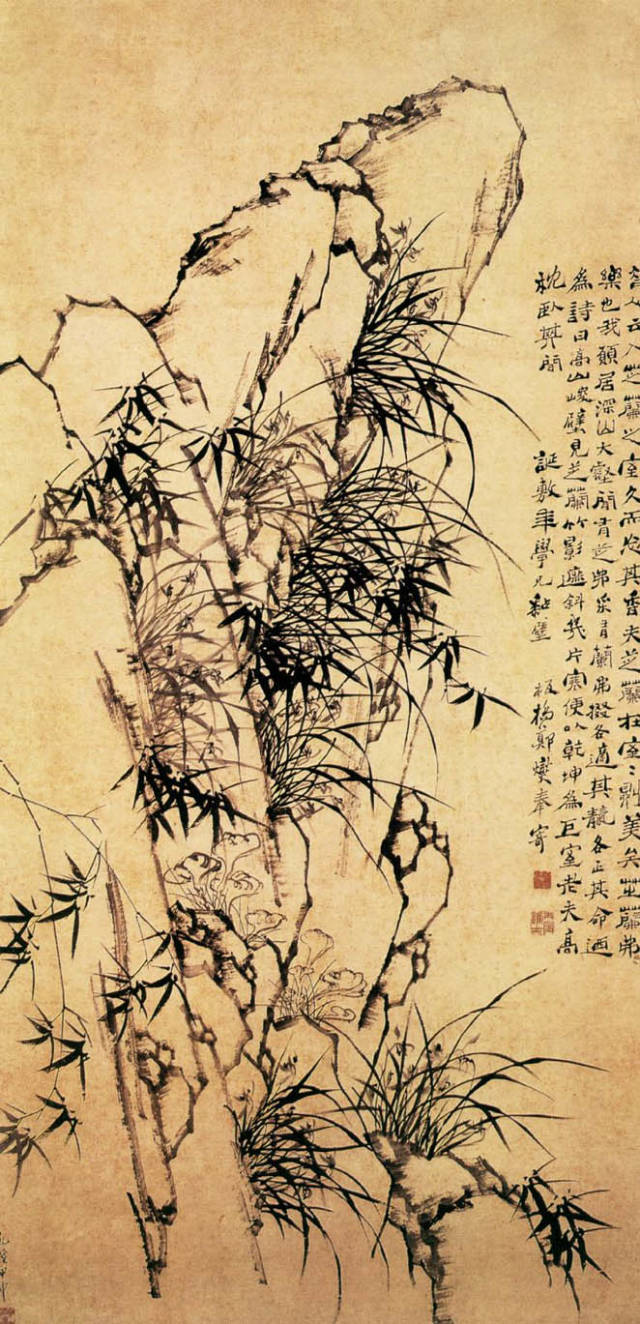 昔人云入芝蘭之室久而忘其香夫芝蘭在室〻則美矣芝蘭弗
樂也我願居深山大壑間有芝弗采有蘭弗掇各適其各正其命迺
為詩曰高山峻壁見芝蘭竹影遮斜幾片寒便以乾坤為巨室老夫高
枕臥其間
誕敷年學兄
板橋鄭燮奉寄